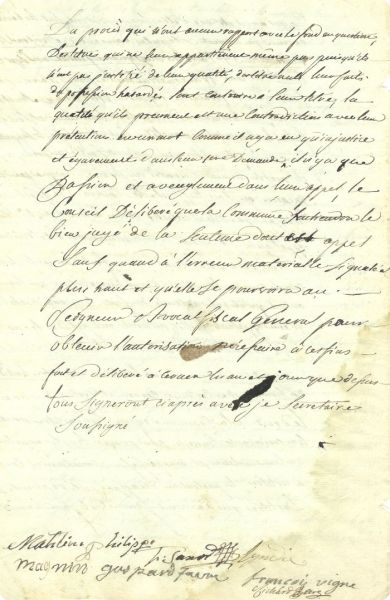 La procès qui n'ont aucun rapport avec le fond en question,
Destitué qui ne leur appartiennent même pas puisqu'ils
n'ont pas justifié de leur qualité, des titres nuls
de possession hasardés sont contraires à leur titre, la
qualité qu'ils prennent est une contradiction avec leur
prétention en un mot comme il n'y a eu qu'injustice
et égarement dans leur Demande, il n'y a que
Passion et aveuglement dans leur appel, le
Conseil Délibère que la Commune soutiendra le
bien jugé de la Sentence dont est appel
Sauf quand à l'erreur matérielle signalée
plus haut et qu'elle se pourvoira au
Seigneur Avocat fiscal Général pour
obtenir l'autorisation nécessaire à ces fins
fait et délibéré à les an et jour que dessus
tous signeront ci après avec je Secretaire
Soussigné
Mathieu philippe Sindic
magnin gaspard françois vigne